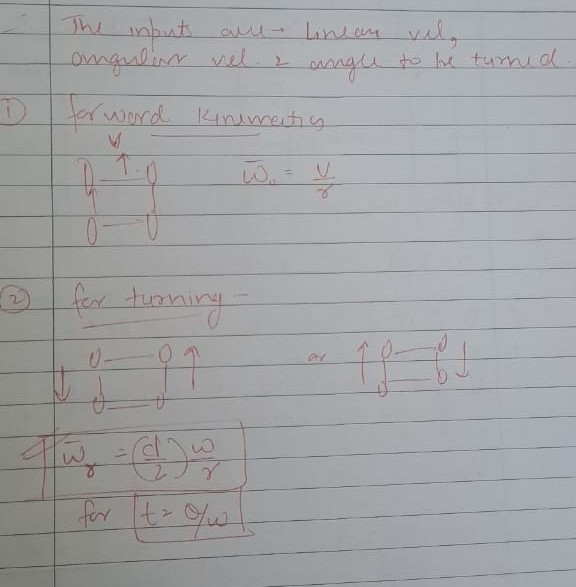 The inputs are → Linear vel,
angular vel. & angle to be turned.
① forword Kinematics
V
ω̅. = V/r
② for turning -
or
ω̅r = (d/2) ω/r
for t = θ/ω